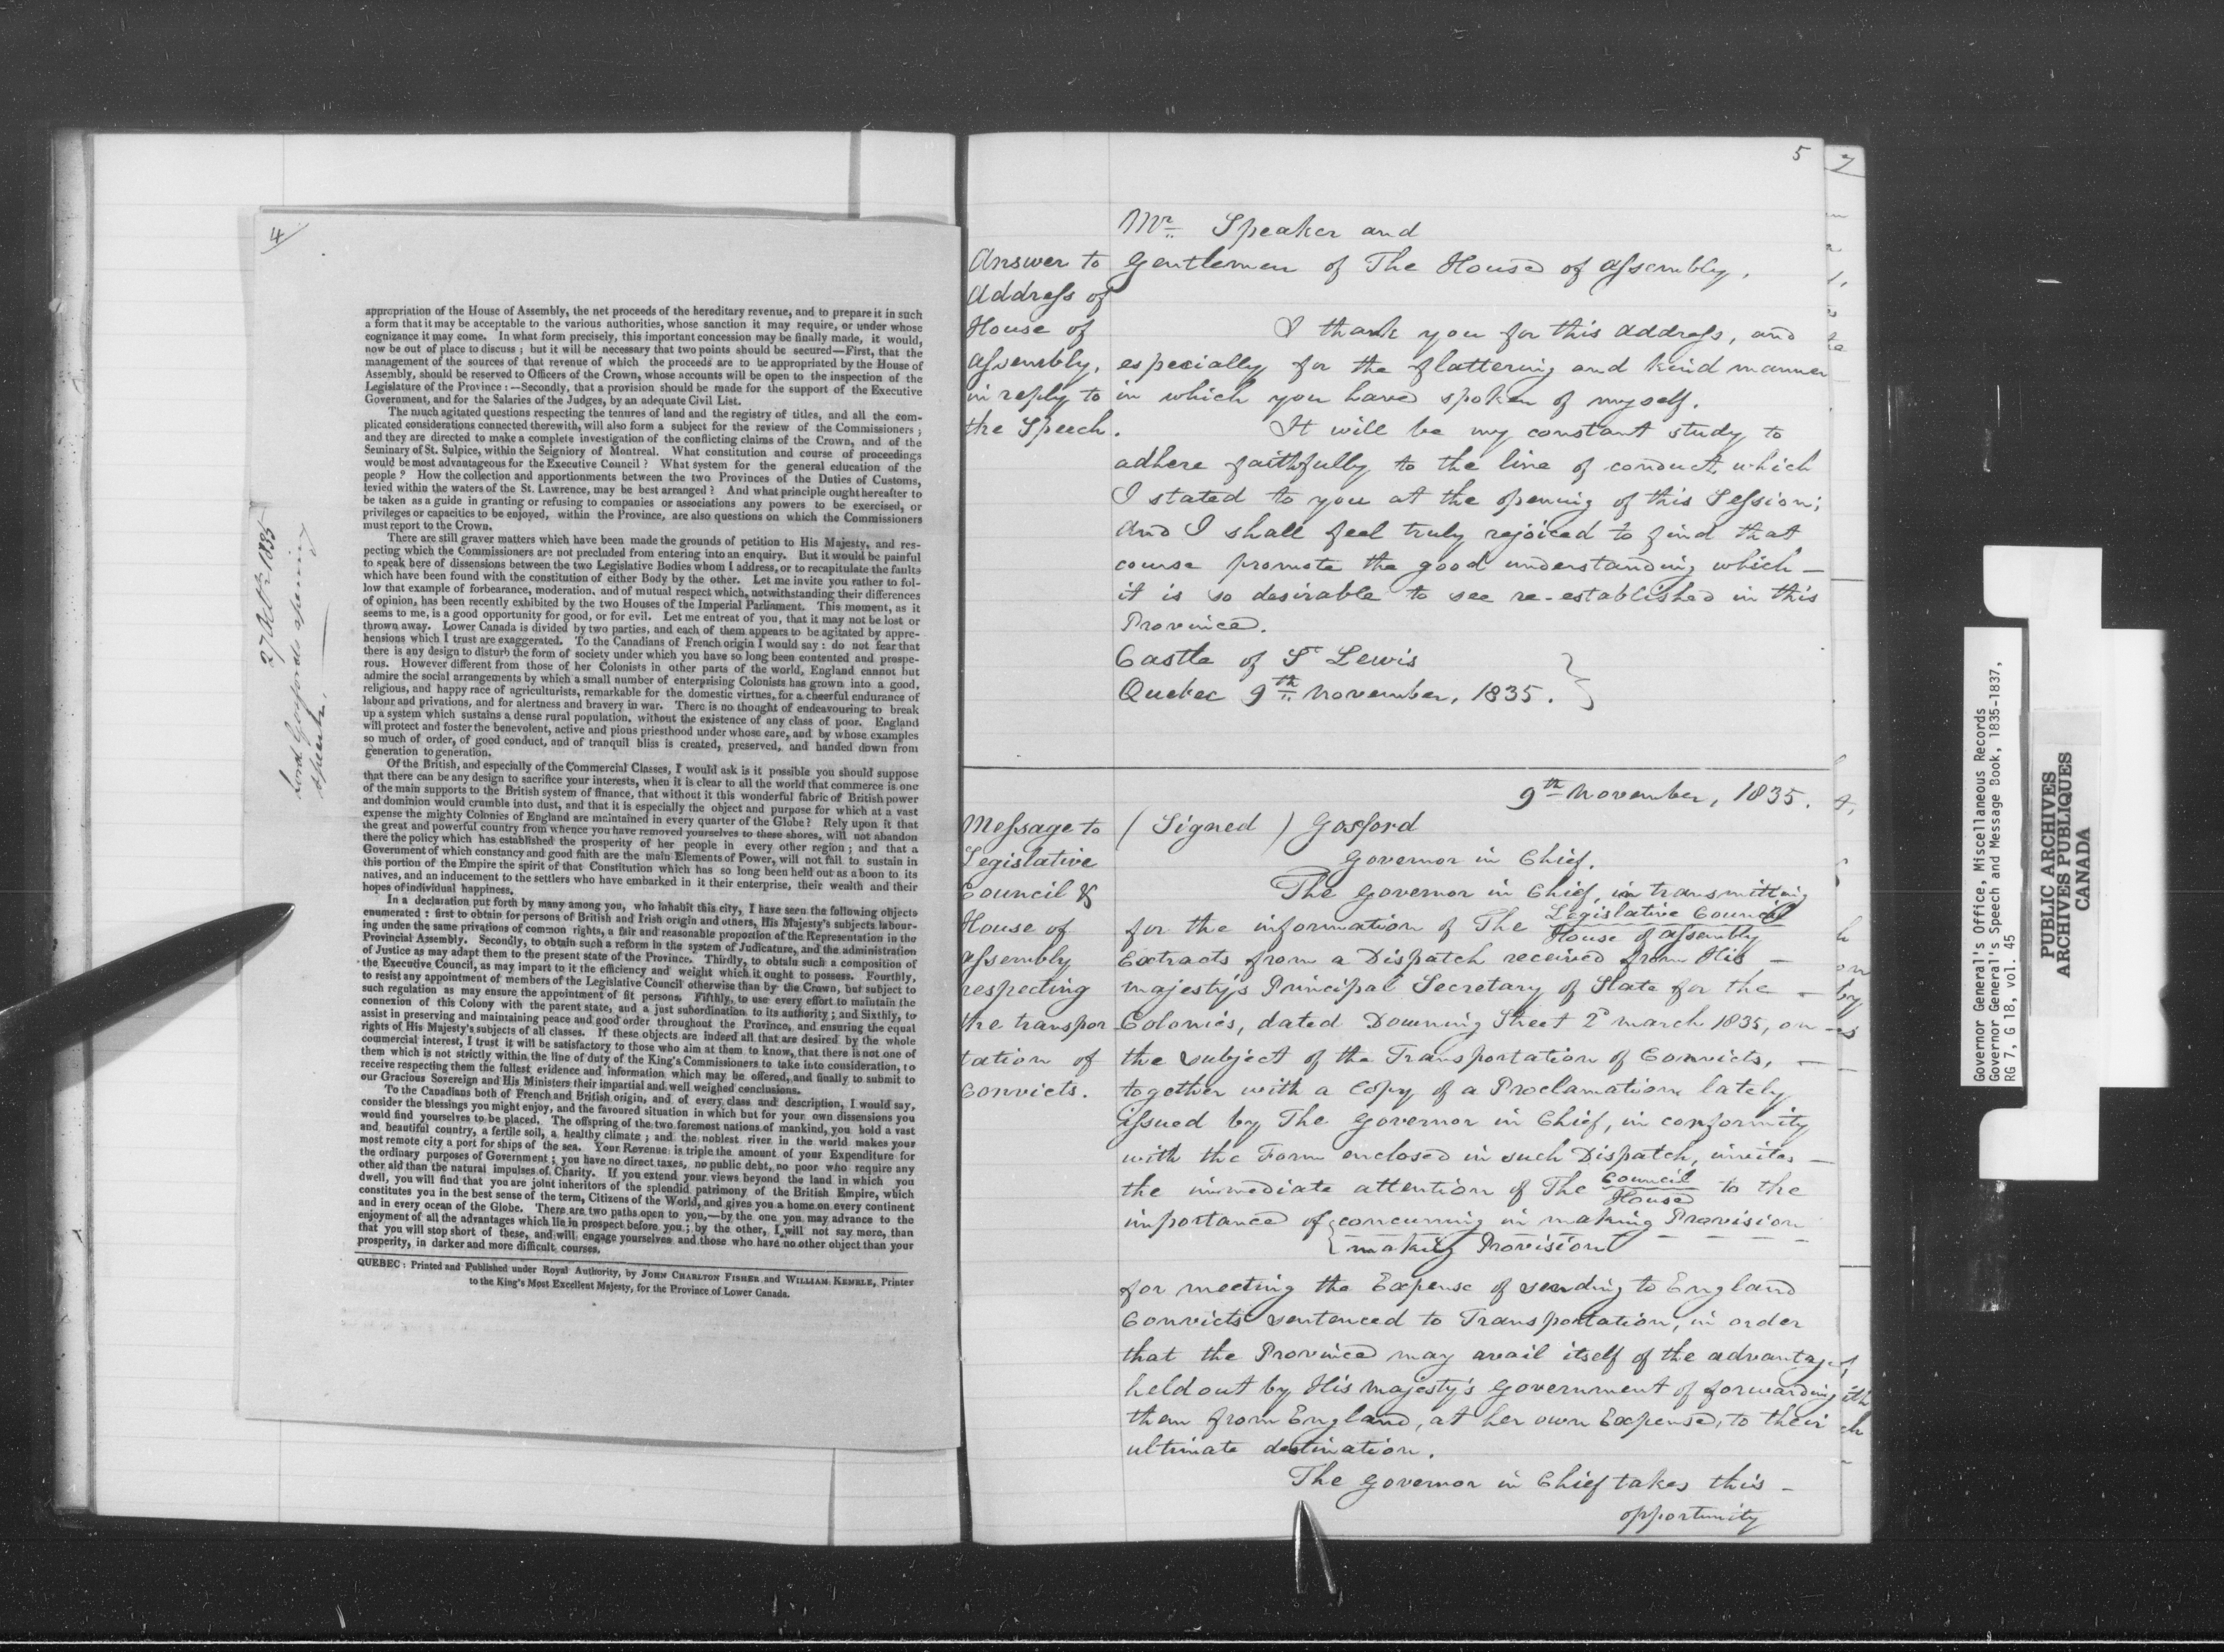 4
appropriation of the House of Assembly, the net proceeds of the hereditary revenue, and to prepare it in such
a form that it may be acceptable to the various authorities, whose sanction it may require, or under whose
cognizance it may come. In what form precisely, this important concession may be finally made, it would,
now be out of place to discuss ; but it will be necessary that two points should be secured—First, that the
management of the sources of that revenue of which the proceeds are to be appropriated by the House of
Assembly, should be reserved to Officers of the Crown, whose accounts will be open to the inspection of the
Legislature of the Province :—Secondly, that a provision should be made for the support of the Executive
Government, and for the Salaries of the Judges, by an adequate Civil List.
The much agitated questions respecting the tenures of land and the registry of titles, and all the com-
plicated considerations connected therewith, will also form a subject for the review of the Commissioners ;
and they are directed to make a complete investigation of the conflicting claims of the Crown, and of the
Seminary of St. Sulpice, within the Seigniory of Montreal. What constitution and course of proceedings
would be most advantageous for the Executive Council ? What system for the general education of the
people ? How the collection and apportionments between the two Provinces of the Duties of Customs,
levied within the waters of the St. Lawrence, may be best arranged ? And what principle ought hereafter to
be taken as a guide in granting or refusing to companies or associations any powers to be exercised, or
privileges or capacities to be enjoyed, within the Province, are also questions on which the Commissioners
must report to the Crown.
There are still graver matters which have been made the grounds of petition to His Majesty, and res-
pecting which the Commissioners are not precluded from entering into an enquiry. But it would be painful
to speak here of dissensions between the two Legislative Bodies whom I address, or to recapitulate the faults
which have been found with the constitution of either Body by the other. Let me invite you rather to fol-
low that example of forbearance, moderation, and of mutual respect which, notwithstanding their differences
of opinion, has been recently exhibited by the two Houses of the Imperial Parliament. This moment, as it
seems to me, is a good opportunity for good, or for evil. Let me entreat of you, that it may not be lost or
thrown away. Lower Canada is divided by two parties, and each of them appears to be agitated by appre-
hensions which I trust are exaggerated. To the Canadians of French origin I would say : do not fear that
there is any design to disturb the form of society under which you have so long been contented and prospe-
rous. However different from those of her Colonists in other parts of the world, England cannot but
admire the social arrangements by which a small number of enterprising Colonists has grown into a good,
religious, and happy race of agriculturists, remarkable for the domestic virtues, for a cheerful endurance of
labour and privations, and for alertness and bravery in war. There is no thought of endeavouring to break
up a system which sustains a dense rural population, without the existence of any class of poor. England
will protect and foster the benevolent, active and pious priesthood under whose care, and by whose examples
so much of order, of good conduct, and of tranquil bliss is created, preserved, and handed down from
generation to generation.
Of the British, and especially of the Commercial Classes, I would ask is it possible you should suppose
that there can be any design to sacrifice your interests, when it is clear to all the world that commerce is one
of the main supports to the British system of finance, that without it this wonderful fabric of British power
and dominion would crumble into dust, and that it is especially the object and purpose for which at a vast
expense the mighty Colonies of England are maintained in every quarter of the Globe ? Rely upon it that
the great and powerful country from whence you have removed yourselves to these shores, will not abandon
there the policy which has established the prosperity of her people in every other region ; and that a
Government of which constancy and good faith are the main Elements of Power, will not fail to sustain in
this portion of the Empire the spirit of that Constitution which has so long been held out as a boon to its
natives, and an inducement to the settlers who have embarked in it their enterprise, their wealth and their
hopes of individual happiness.
In a declaration put forth by many among you, who inhabit this city, I have seen the following objects
enumerated : first to obtain for persons of British and Irish origin and others, His Majesty's subjects labour-
ing under the same privations of common rights, a fair and reasonable proportion of the Representation in the
Provincial Assembly. Secondly, to obtain such a reform in the system of Judicature, and the administration
of Justice as may adapt them to the present state of the Province. Thirdly, to obtain such a composition of
the Executive Council, as may impart to it the efficiency and weight which it ought to possess. Fourthly,
to resist any appointment of members of the Legislative Council otherwise than by the Crown, but subject to
such regulation as may ensure the appointment of fit persons. Fifthly, to use every effort to maintain the
connexion of this Colony with the parent state, and a just subordination to its authority ; and Sixthly, to
assist in preserving and maintaining peace and good order throughout the Province, and ensuring the equal
rights of His Majesty's subjects of all classes. If these objects are indeed all that are desired by the whole
commercial interest, I trust it will be satisfactory to those who aim at them to know, that there is not one of
them which is not strictly within the line of duty of the King's Commissioners to take into consideration, to
receive respecting them the fullest evidence and information which may be offered, and finally to submit to
our Gracious Sovereign and His Ministers their impartial and well weighed conclusions.
To the Canadians both of French and British origin, and of every class and description, I would say,
consider the blessings you might enjoy, and the favoured situation in which but for your own dissensions you
would find yourselves to be placed. The offspring of the two foremost nations of mankind, you hold a vast
and beautiful country, a fertile soil, a healthy climate ; and the noblest river in the world makes your
most remote city a port for ships of the sea. Your Revenue is triple the amount of your Expenditure for
the ordinary purposes of Government ; you have no direct taxes, no public debt, no poor who require any
other aid than the natural impulses of Charity. If you extend your views beyond the land in which you
dwell, you will find that you are joint inheritors of the splendid patrimony of the British Empire, which
constitutes you in the best sense of the term, Citizens of the World, and gives you a home on every continent
and in every ocean of the Globe. There are two paths open to you,—by the one you may advance to the
enjoyment of all the advantages which lie in prospect before you ; by the other, I will not say more, than
that you will stop short of these, and will engage yourselves and those who have no other object than your
prosperity, in darker and more difficult courses.
QUEBEC : Printed and Published under Royal Authority, by JOHN CHARLTON FISHER and WILLIAM KEMBLE, Printer
to the King's Most Excellent Majesty, for the Province of Lower Canada.
27 Octr 1835
Lord Gosfords opening
speech.
5
7
Answer to
Address of
House of
Assembly,
in reply to
the Speech.
Mr Speaker and
Gentlemen of The House of Assembly,
I thank you for this address, and
especially for the flattering and kind manner
in which you have spoken of myself.
It will be my constant study to
adhere faithfully to the line of conduct which
I stated to you at the opening of this Session;
and I shall feel truly rejoiced to find that
course promote the good understanding which —
it is so desirable to see re-established in this
Province.
Castle of St Lewis
Quebec 9th November, 1835.
9th November, 1835.
Message to
Legislative
Council &
House of
Assembly
respecting
the transpor
tation of
Convicts.
( Signed ) Gosford
Governor in Chief.
The Governor in Chief, in transmitting
for the information of The Legislative Council
House of Assembly
Extracts from a Dispatch received from His —
Majesty's Principal Secretary of State for the —
Colonies, dated Downing Street 2d March 1835, on
the subject of the Transportation of Convicts, —
together with a Copy of a Proclamation lately
issued by The Governor in Chief, in conformity
with the Form enclosed in such Dispatch, invites —
the immediate attention of The Council to the
House
importance of { concurring in making Provision
{ making Provision
for meeting the Expense of sending to England
Convicts sentenced to Transportation, in order
that the Province may avail itself of the advantages
held out by His Majesty's Government of forwarding
them from England, at her own Expense, to their
ultimate destination.
The Governor in Chief takes this —
opportunity
Governor General's Office, Miscellaneous Records
Governor General's Speech and Message Book, 1835-1837,
RG 7, G 18, vol. 45
PUBLIC ARCHIVES
ARCHIVES PUBLIQUES
CANADA